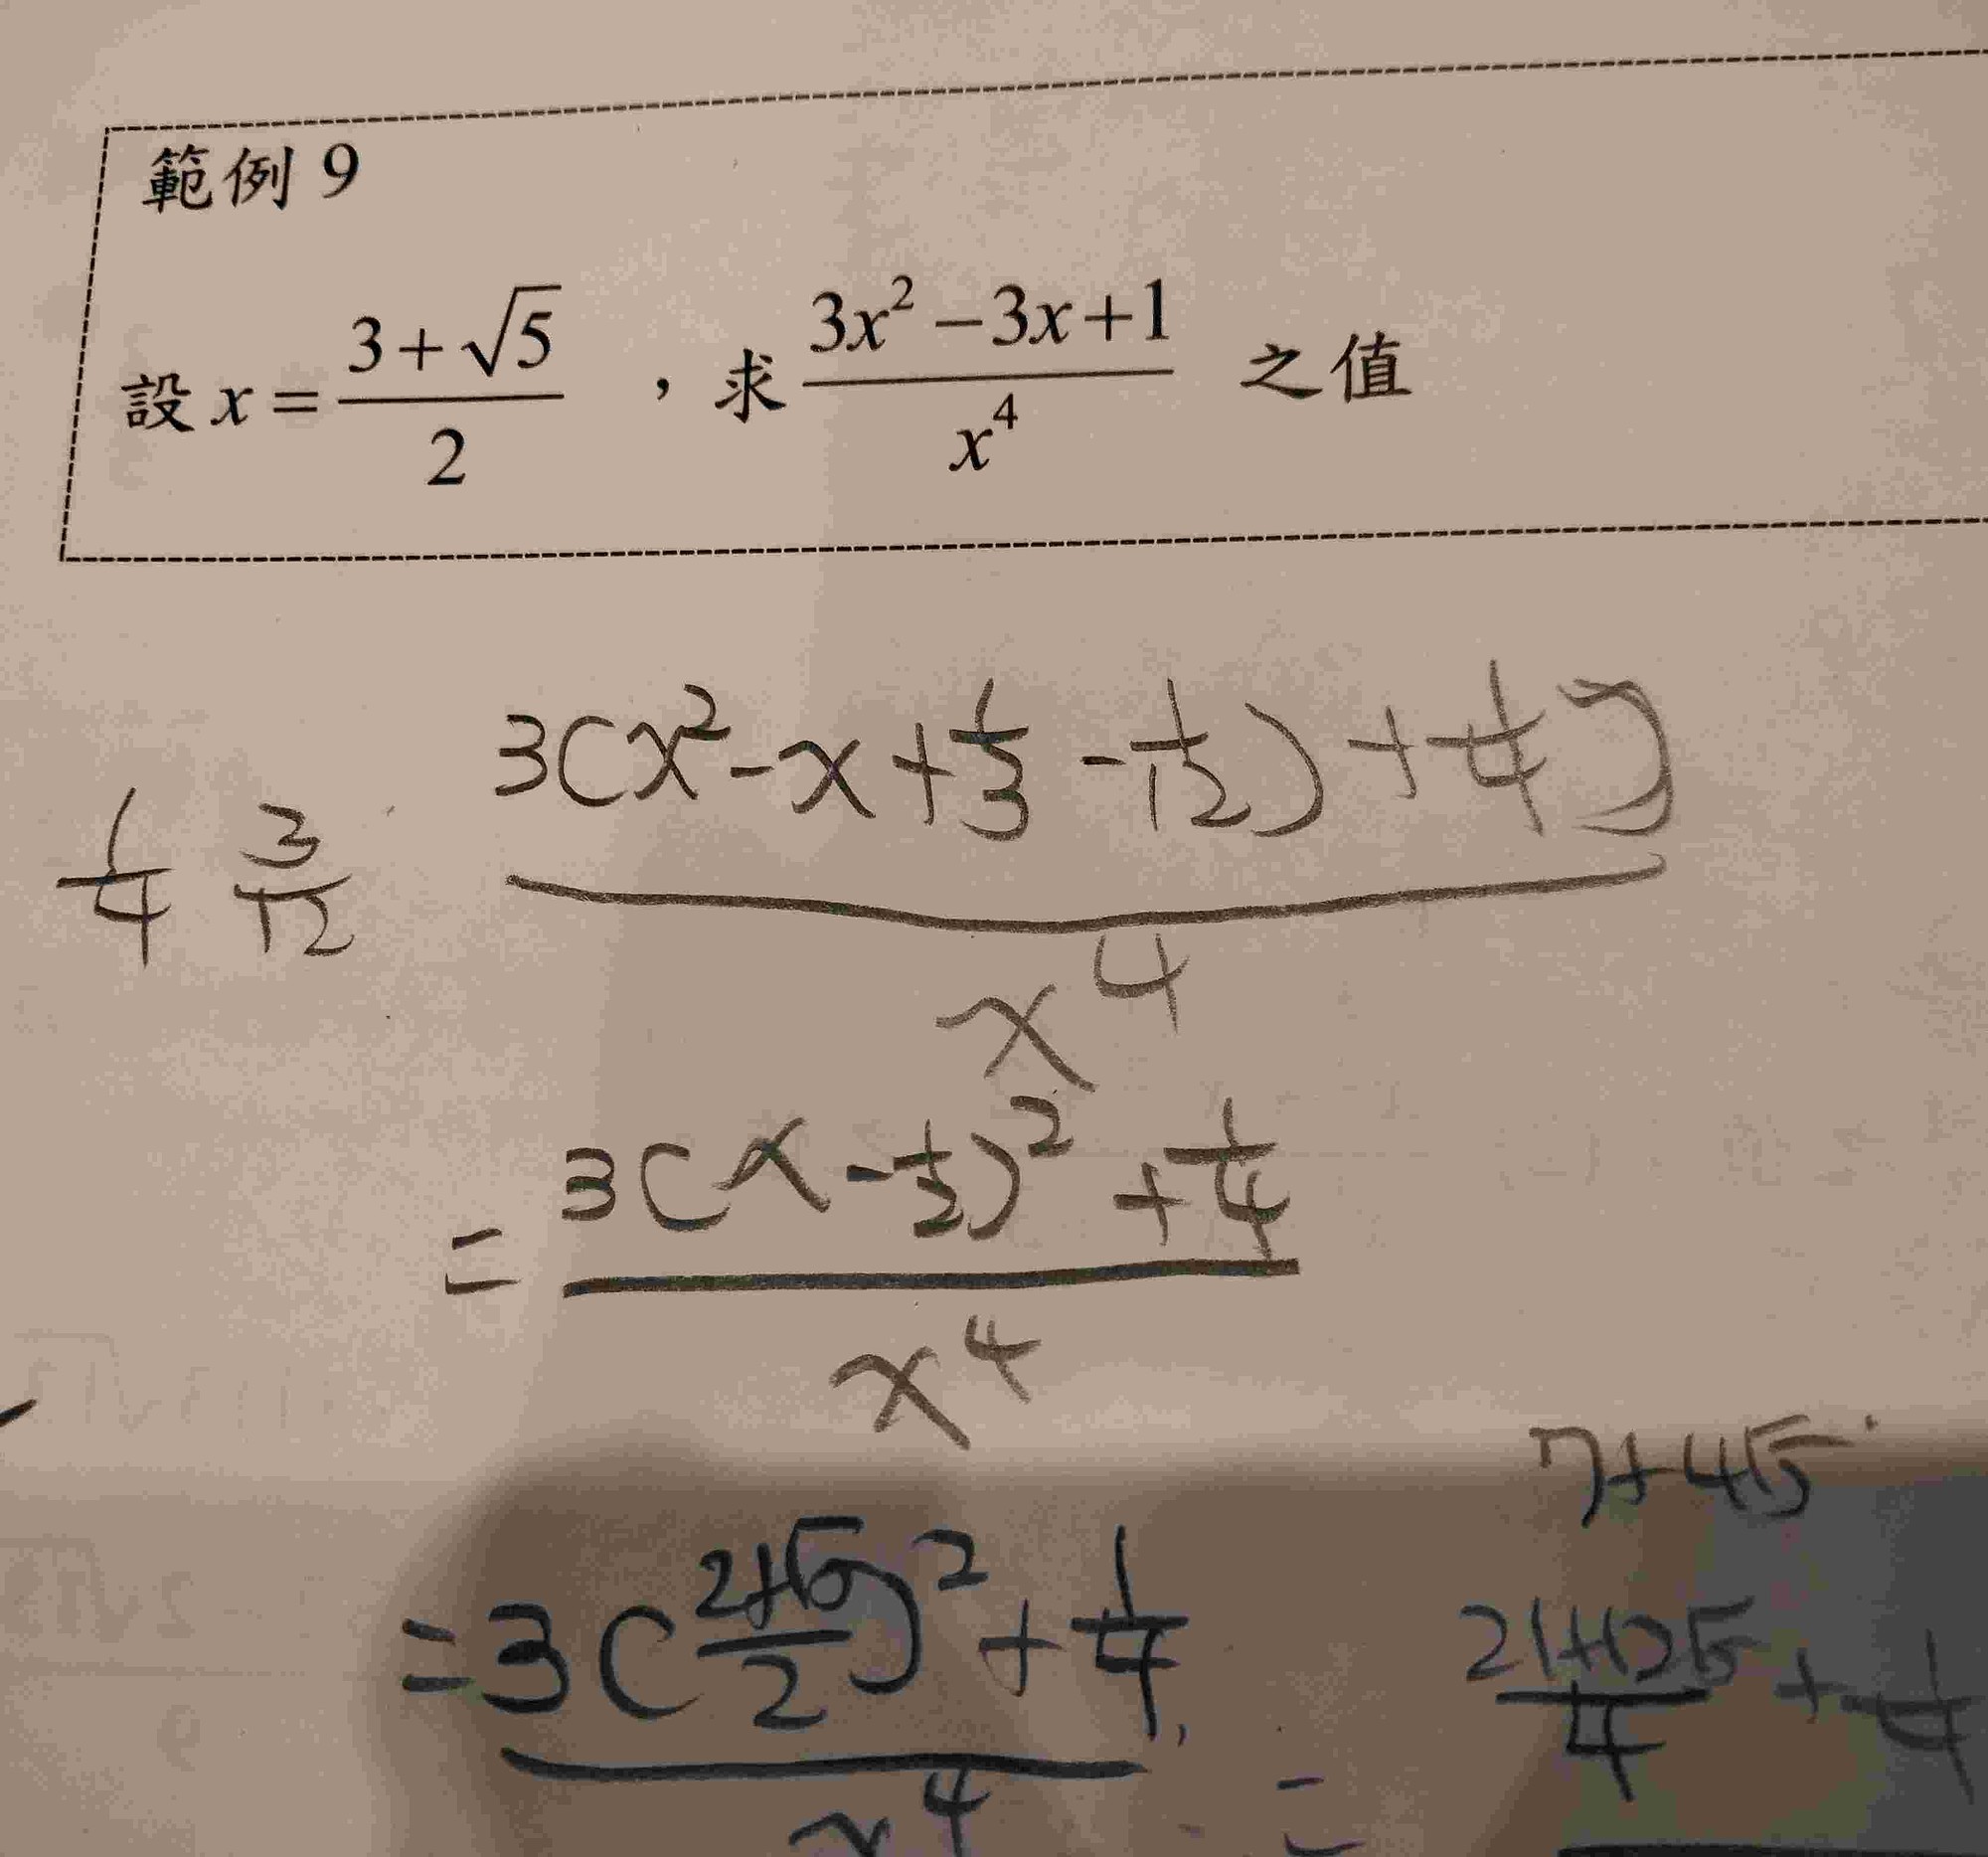 範例 9
設 x = \frac{3+\sqrt{5}}{2} ，求 \frac{3x^2-3x+1}{x^4} 之值
\frac{1}{4} \frac{3}{12} \frac{3(x^2-x+\frac{1}{3}-\frac{1}{12})+\frac{1}{4})}{x^4}
= \frac{3(x-\frac{1}{2})^2+\frac{1}{4}}{x^4}
7+4\sqrt{5}
= \frac{3(\frac{2+\sqrt{5}}{2})^2+\frac{1}{4}}{x^4} = \frac{21+12\sqrt{5}}{4}+\frac{1}{4}